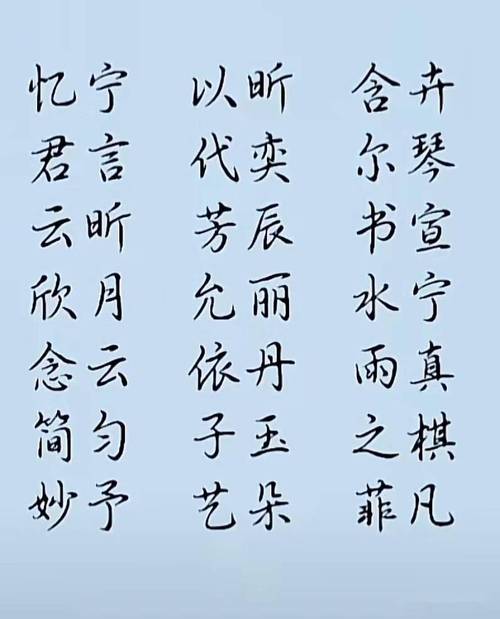 忆宁 以昕 含卉
君言 代奕 尔琴
云昕 芳辰 书宣
欣月 允丽 水宁
念云 依丹 雨真
简匀 子玉 之棋
妙予 艺朵 菲凡